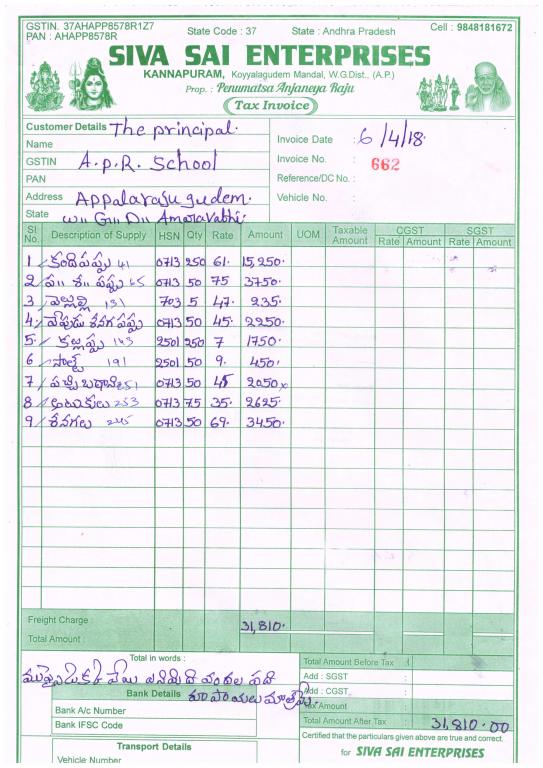 GSTIN. 37AHAPP8578R1Z7 State Code : 37 State : Andhra Pradesh Cell : 9848181672
PAN : AHAPP8578R
SIVA SAI ENTERPRISES
KANNAPURAM, Koyyalagudem Mandal, W.G.Dist., (A.P.)
Prop. : Penumatsa Anjaneya Raju
Tax Invoice
Customer Details The principal.
Name
GSTIN A.p.R. School
PAN
Address Appalaraju gudem.
State W11 G11 D11 Amaravathi.
Invoice Date : 6/4/18.
Invoice No. : 662
Reference/DC No. :
Vehicle No. :
Sl No. Description of Supply HSN Qty Rate Amount UOM Taxable Amount CGST Rate Amount SGST Rate Amount
1 కందిపప్పు 41 0713 250 61. 15,250.
2 ప॥ శె॥ పప్పు 65 0713 50 75 3750.
3 వెల్లుల్లి 131 703 5 47. 235.
4. వేపుడు శెనగపప్పు 0713 50 45. 2250
5. కల్లుప్పు 143 2501 250 7 1750.
6 సాల్ట్ 191 2501 50 9. 450.
7 పచ్చిబఠాని 251 0713 50 2050
8 అటుకులు 253 0713 75 35. 2625.
9 శెనగలు 0713 50 69. 3450.
Freight Charge :
Total Amount : 31,810.
Total in words :
ముప్పై ఒకటి వేయి ఎనిమిది వందల పది
రూపాయలు మాత్రమే.
Bank Details
Bank A/c Number
Bank IFSC Code
Transport Details
Vehicle Number
Total Amount Before Tax :
Add : SGST :
Add : CGST :
Tax Amount :
Total Amount After Tax : 31,810.00
Certified that the particulars given above are true and correct.
for SIVA SAI ENTERPRISES